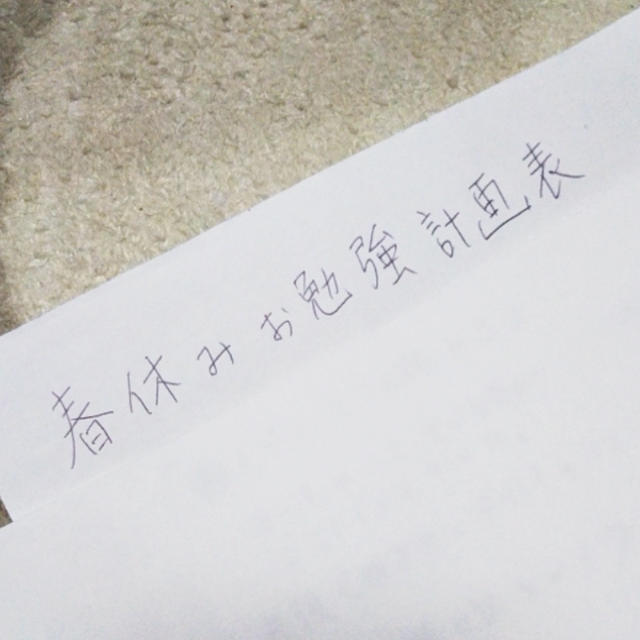 春休みお勉強計画表